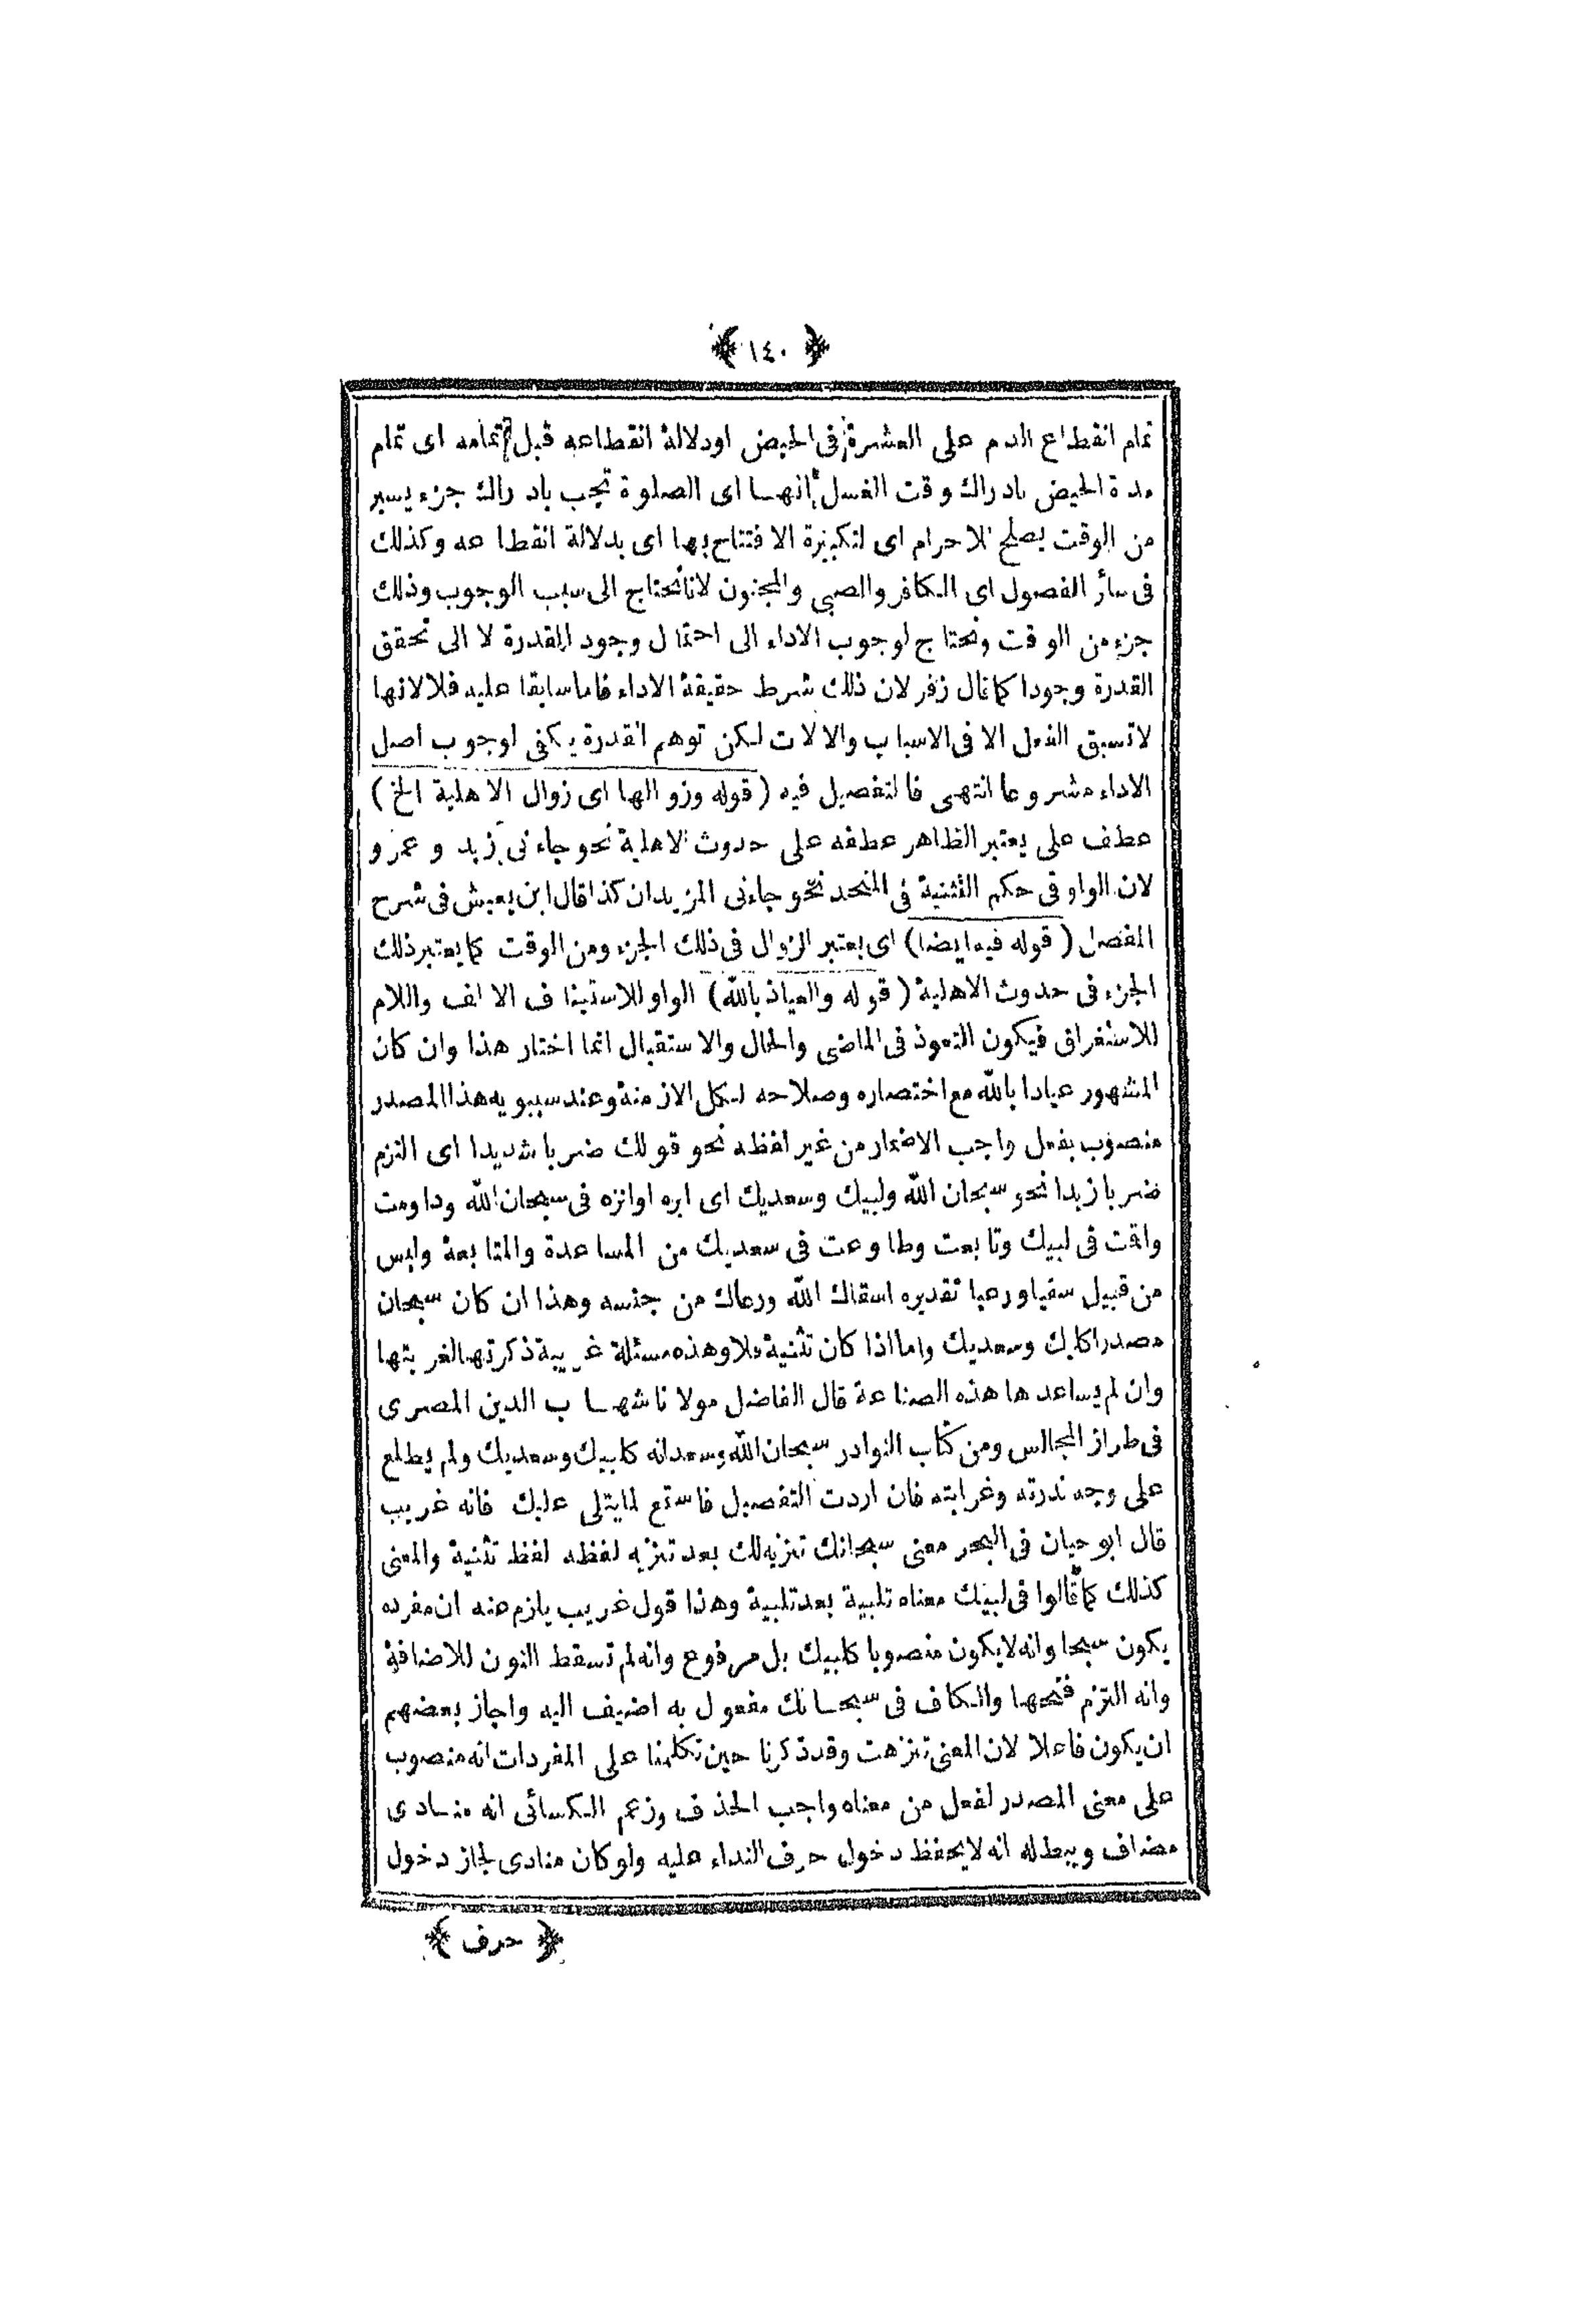 ﴿ ١٤٠ ﴾
تمام انقطاع الدم على العشرة فى الحيض اودلالة انقطاعه قبل تمامه اى تمام
مدة الحيض بادراك وقت الغسل انهـا اى الصلوة تجب بادراك جزء يسير
من الوقت يصلح للاحرام اى لتكبيرة الافتتاح بها اى بدلالة انقطاعه وكذلك
فى سائر الفصول اى الكافر والصبى والمجنون لانا نحتاج الى سبب الوجوب وذلك
جزء من الوقت ونحتاج لوجوب الاداء الى احتمال وجود القدرة لا الى تحقق
القدرة وجودا كما قال زفر لان ذلك شرط حقيقة الاداء فاما سابقا عليه فلا لانها
لا تسبق الفعل الا فى الاسباب والالات لكن توهم القدرة يكفى لوجوب اصل
الاداء مشروعا انتهى فالتفصيل فيه ( قوله وزوالها اى زوال الاهلية الخ )
عطف على يعتبر الظاهر عطفه على حدوث الاهلية نحو جاءنى زيد و عمرو
لان الواو فى حكم التثنية فى المتحد نحو جاءنى المزيدان كذا قال ابن يعيش فى شرح
المفصل ( قوله فيه ايضا ) اى يعتبر الزوال فى ذلك الجزء ومن الوقت كما يعتبر ذلك
الجزء فى حدوث الاهلية ( قوله والعياذ بالله ) الواو للاستيناف الالف واللام
للاستغراق فيكون التعوذ فى الماضى والحال والاستقبال انما اختار هذا وان كان
المشهور عياذا بالله مع اختصاره وصلاحه لكل الازمنة وعند سيبويه هذا المصدر
منصوب بفعل واجب الاضمار من غير لفظه نحو قولك ضربا شديدا اى التزم
ضربا زيدا نحو سبحان الله ولبيك وسعديك اى ابره اوانزه فى سبحان الله وداومت
واقت فى لبيك وتابعت وطاوعت فى سعديك من المساعدة والمتابعة وليس
من قبيل سقيا ورعيا تقديره اسقاك الله ورعاك من جنسه وهذا ان كان سبحان
مصدرا كلبيك وسعديك واما اذا كان تثنية فلا وهذه مسئلة غريبة ذكرتها لغرابتها
وان لم يساعدها هذه الصناعة قال الفاضل مولانا شهـاب الدين المصرى
فى طراز المجالس ومن كتاب النوادر سبحان الله وسعدانه كلبيك وسعديك ولم يطلع
على وجه ندرته وغرابته فان اردت التفصيل فاستمع لما يتلى عليك فانه غريب
قال ابو حيان فى البحر معنى سبحانك تنزيه لك بعد تنزيه لفظه لفظ تثنية والمعنى
كذلك كما قالوا فى لبيك معناه تلبية بعد تلبية وهذا قول غريب يلزم عنه ان مفرده
يكون سبحا وانه لا يكون منصوبا كلبيك بل مرفوع وانه لم تسقط النون للاضافة
وانه التزم فتحها والكاف فى سبحـانك مفعول به اضيف اليه واجاز بعضهم
ان يكون فاعلا لان المعنى تنزهت وقد ذكرنا حين تكلمنا على المفردات انه منصوب
على معنى المصدر لفعل من معناه واجب الحذف وزعم الكسائى انه منـادى
مضاف ويبطله انه لا يحفظ دخول حرف النداء عليه ولو كان منادى لجاز دخول
﴿ حرف ﴾